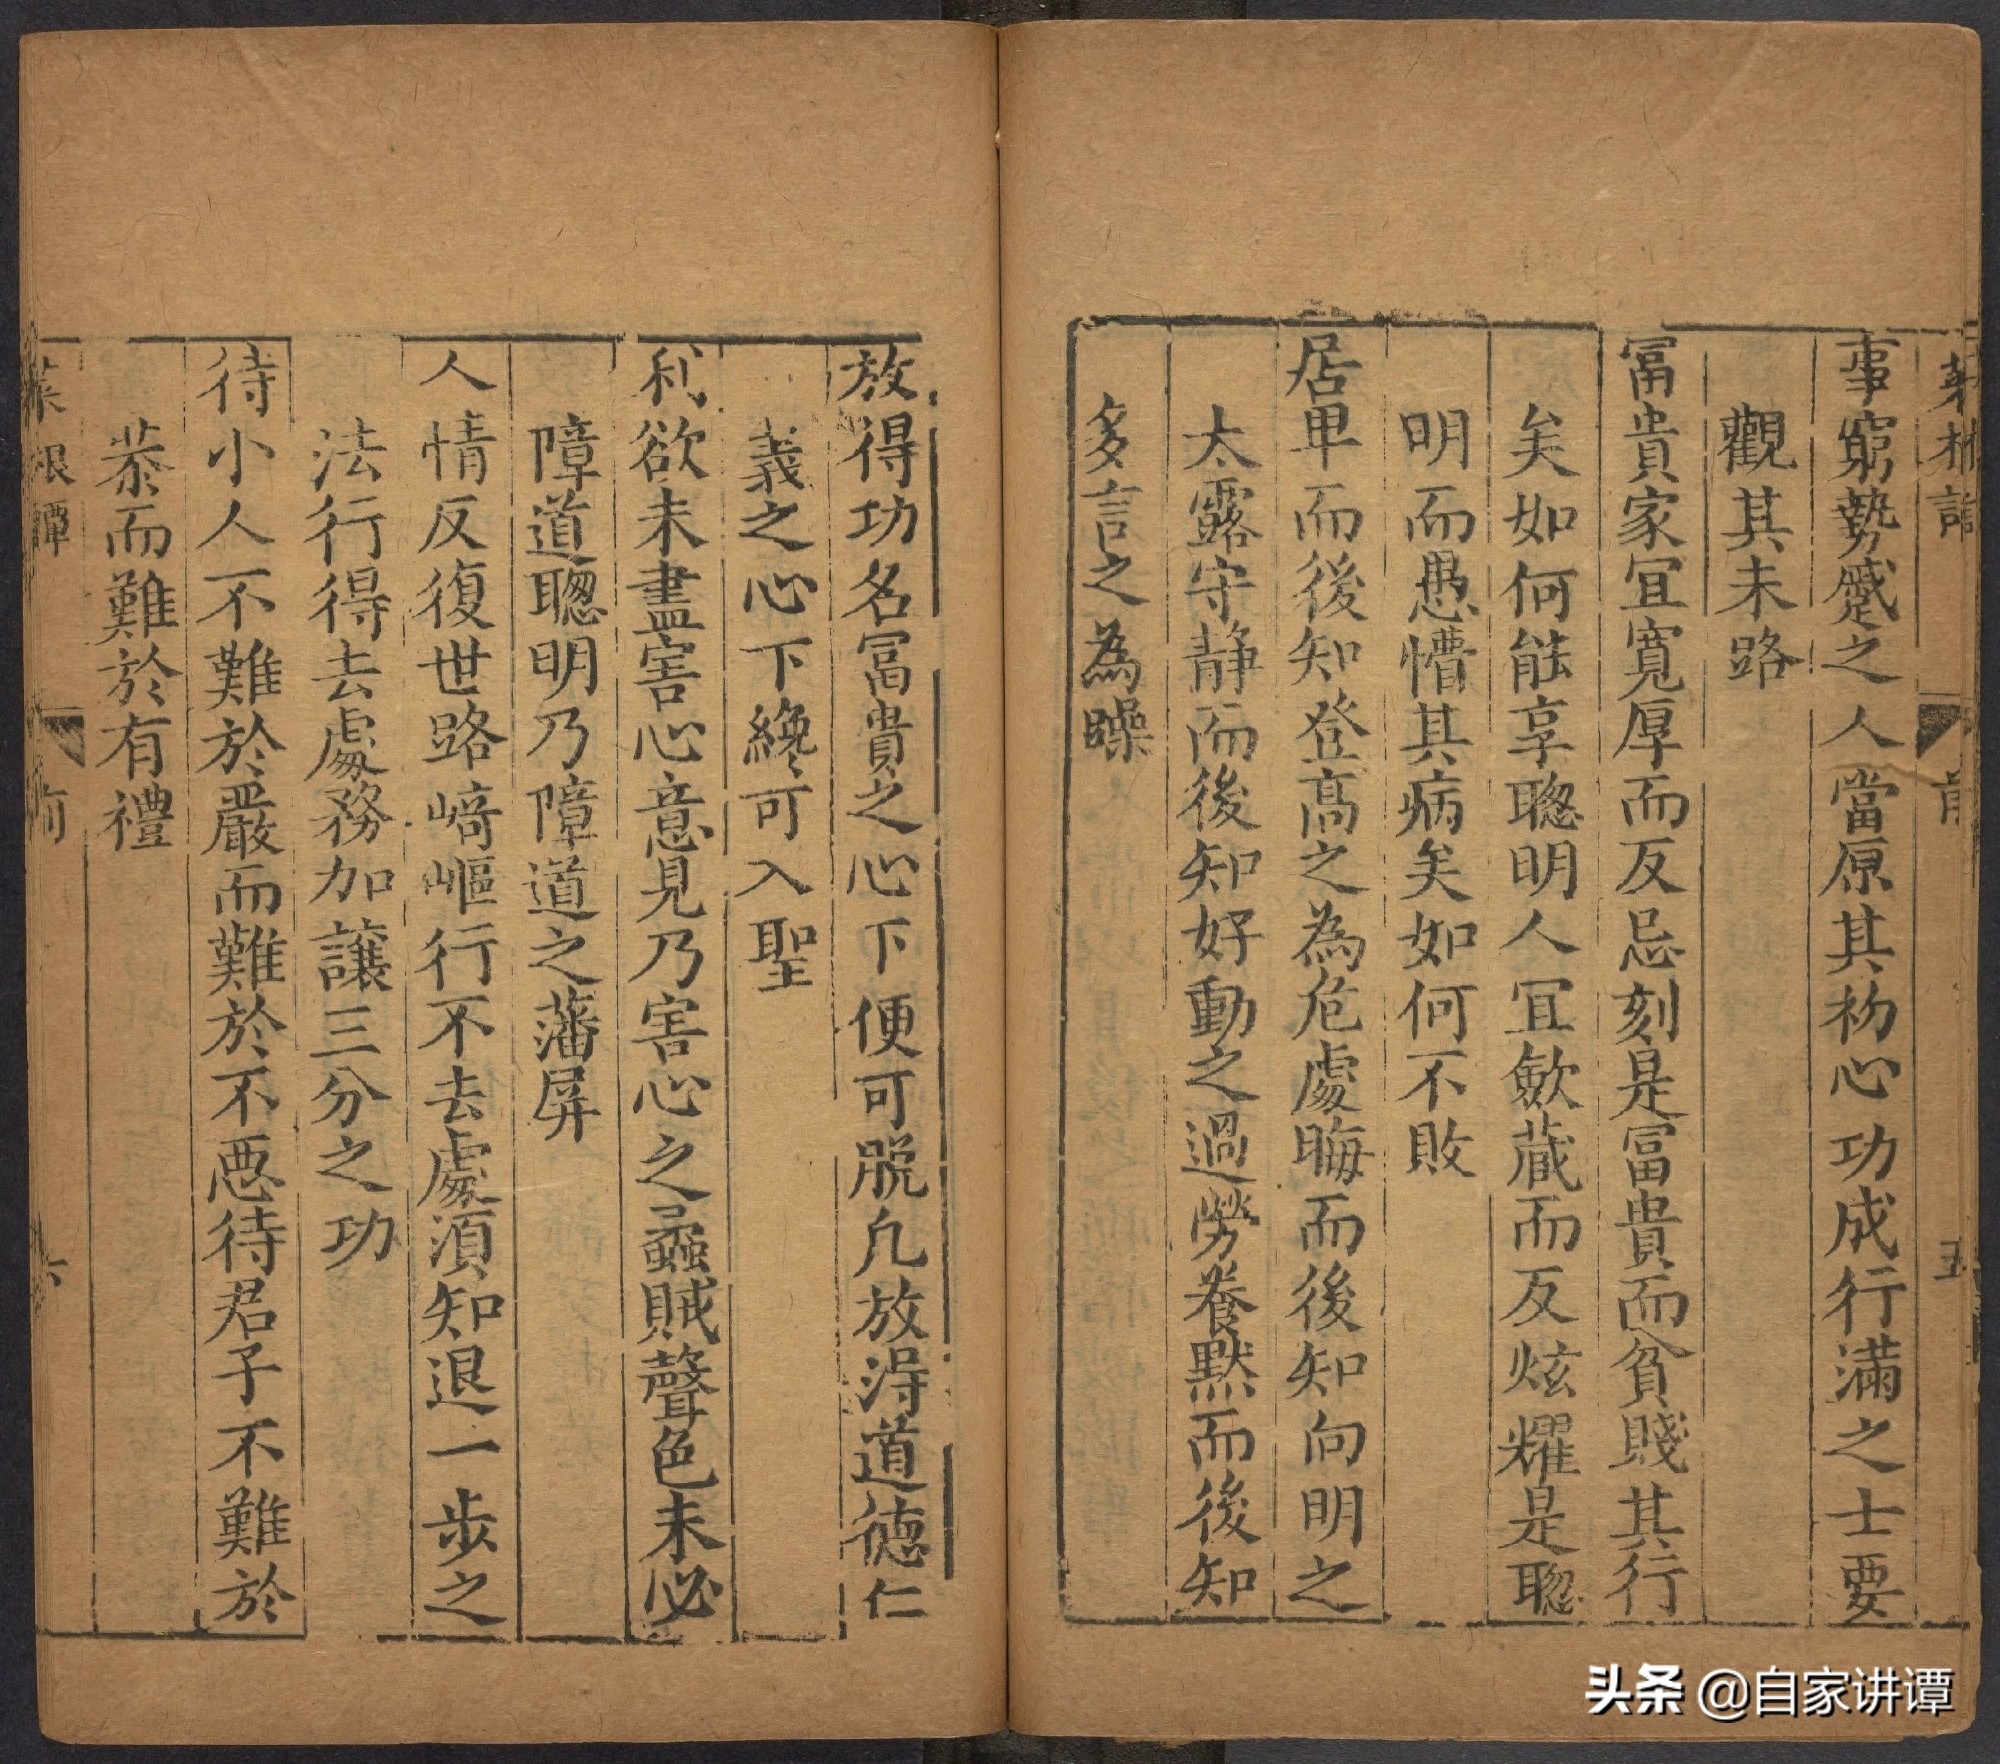 菜根譚 前 五
事窮勢蹙之人當原其初心功成行滿之士要
觀其末路
富貴家宜寬厚而反忌刻是富貴而貧賤其行
矣如何能享聰明人宜歛藏而反炫耀是聰
明而愚懵其病矣如何不敗
居卑而後知登高之為危處晦而後知向明之
太露守静而後知好動之過勞養黙而後知
多言之為躁
放得功名富貴之心下便可脱凡放得道德仁
義之心下纔可入聖
利欲未盡害心意見乃害心之蟊賊聲色未必
障道聰明乃障道之藩屏
人情反復世路崎嶇行不去處須知退一步之
法行得去處務加讓三分之功
待小人不難於嚴而難於不惡待君子不難於
恭而難於有禮
菜根譚 前 六
头条 @自家讲谭